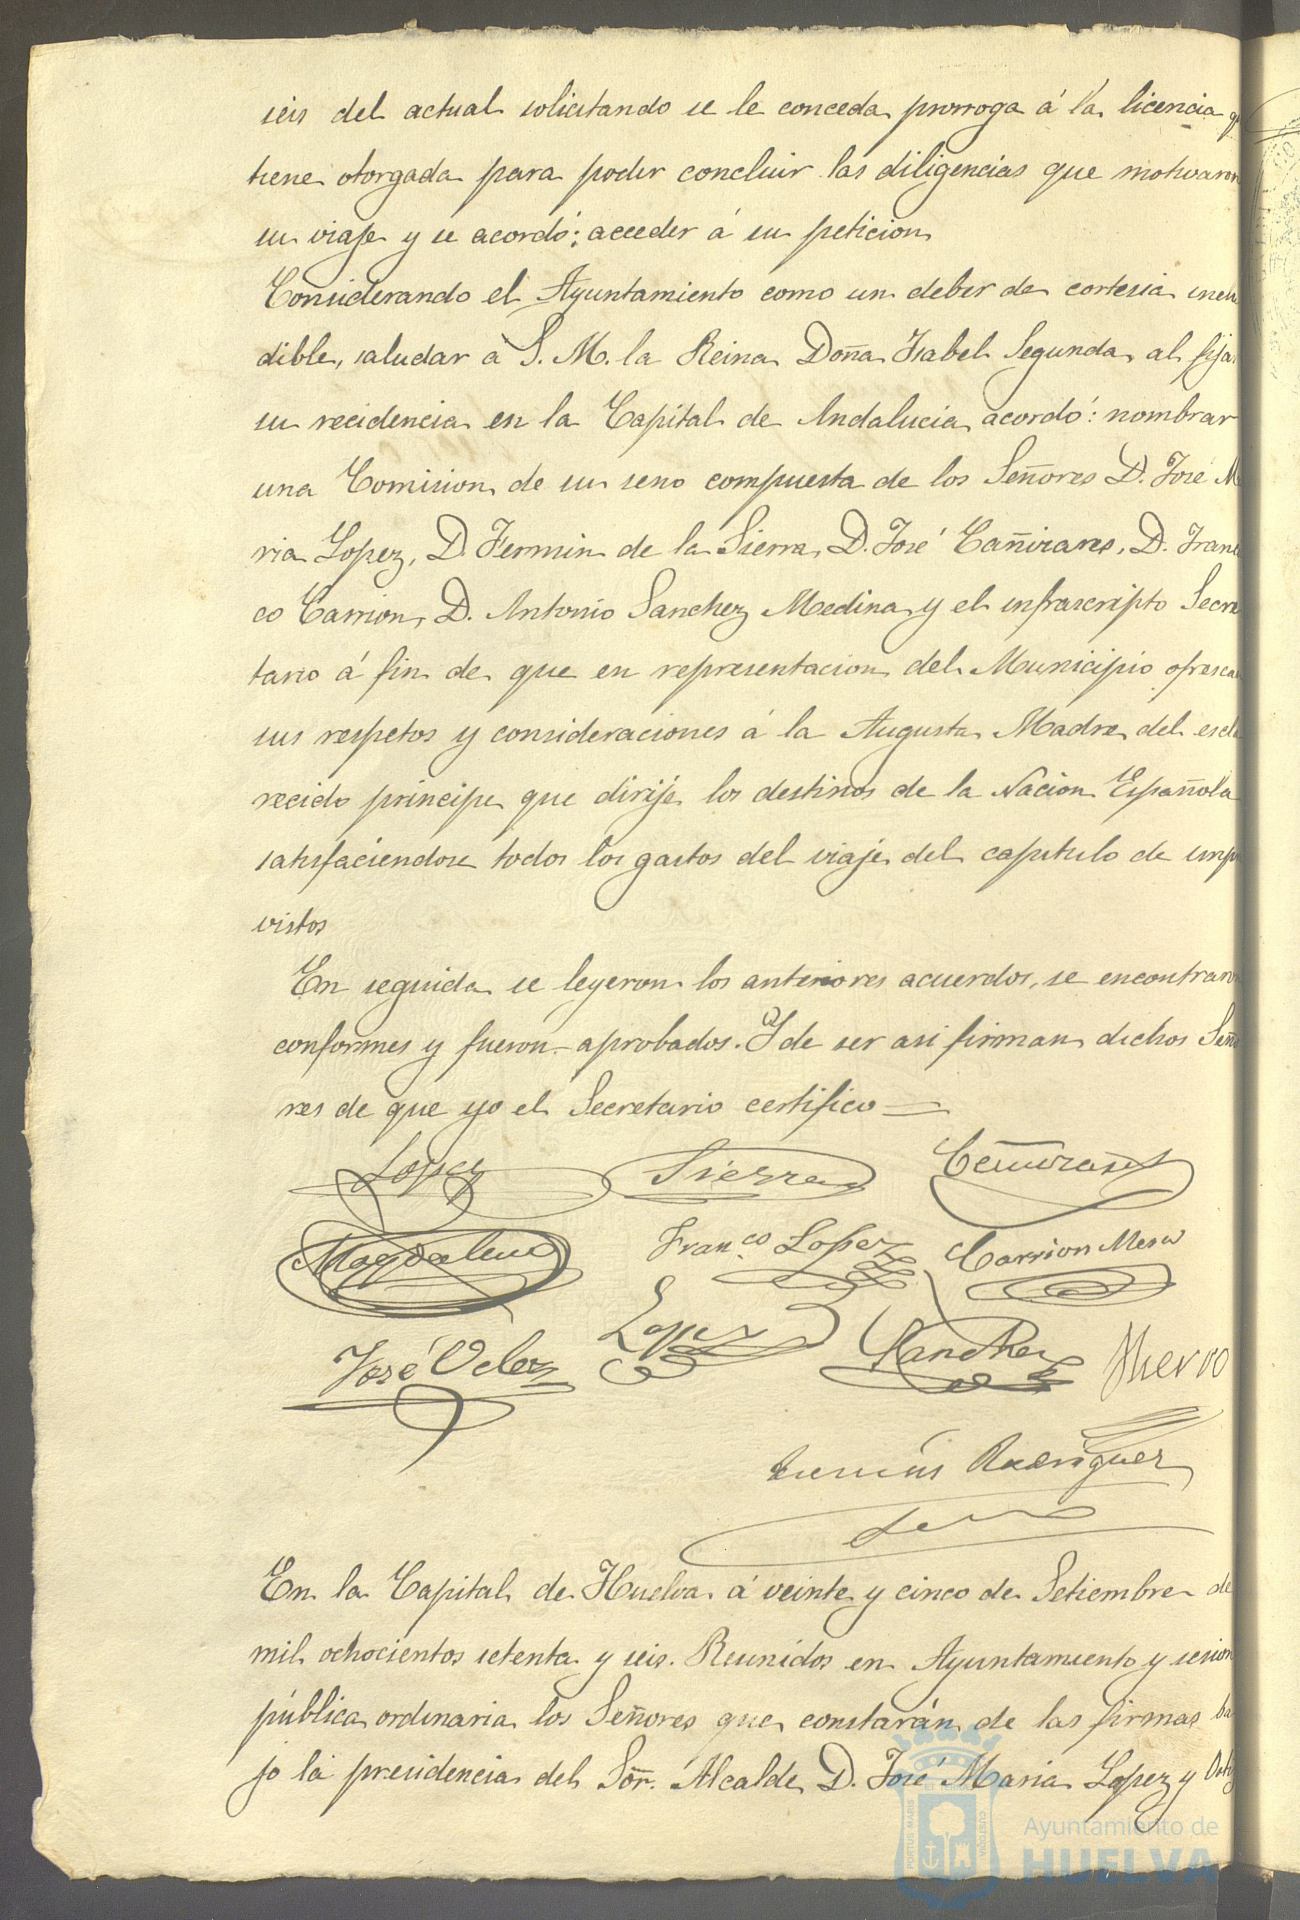 seis del actual solicitando se le conceda prorroga á la licencia q
tiene otorgada para poder concluir las diligencias que motivaron
su viaje y se acordó: acceder á su peticion
Considerando el Ayuntamiento como un deber de cortesia inelu
dible, saludar á S. M. la Reina Doña Isabel Segunda, al fijar
su recidencia en la Capital de Andalucia acordó: nombrar
una Comision de su seno compuesta de los Señores D. José M
ria Lopez, D. Fermin de la Sierra, D. José Cañizares, D. Francis
co Carrion, D. Antonio Sanchez Medina y el infrascripto Secre
tario á fin de que en representacion del Municipio ofrescan
sus respetos y consideraciones á la Augusta Madre del escla
recido principe que dirije los destinos de la Nacion Española
satisfaciendose todos los gastos del viaje del capitulo de impre
vistos
En seguida se leyeron los anteriores acuerdos, se encontraron
conformes y fueron aprobados. Y de ser asi firman dichos Seño
res de que yo el Secretario certifico
Lopez Sierra Cañizares
Magdalena Fran.co Lopez Carrion Mesa
José Velez Lopez Sanchez
Rodriguez
En la Capital de Huelva á veinte y cinco de Setiembre de
mil ochocientos setenta y seis. Reunidos en Ayuntamiento y sesion
pública ordinaria los Señores que constarán de las firmas ba
jo la presidencia del Sör. Alcalde D. José Maria Lopez y
Ayuntamiento de
HUELVA